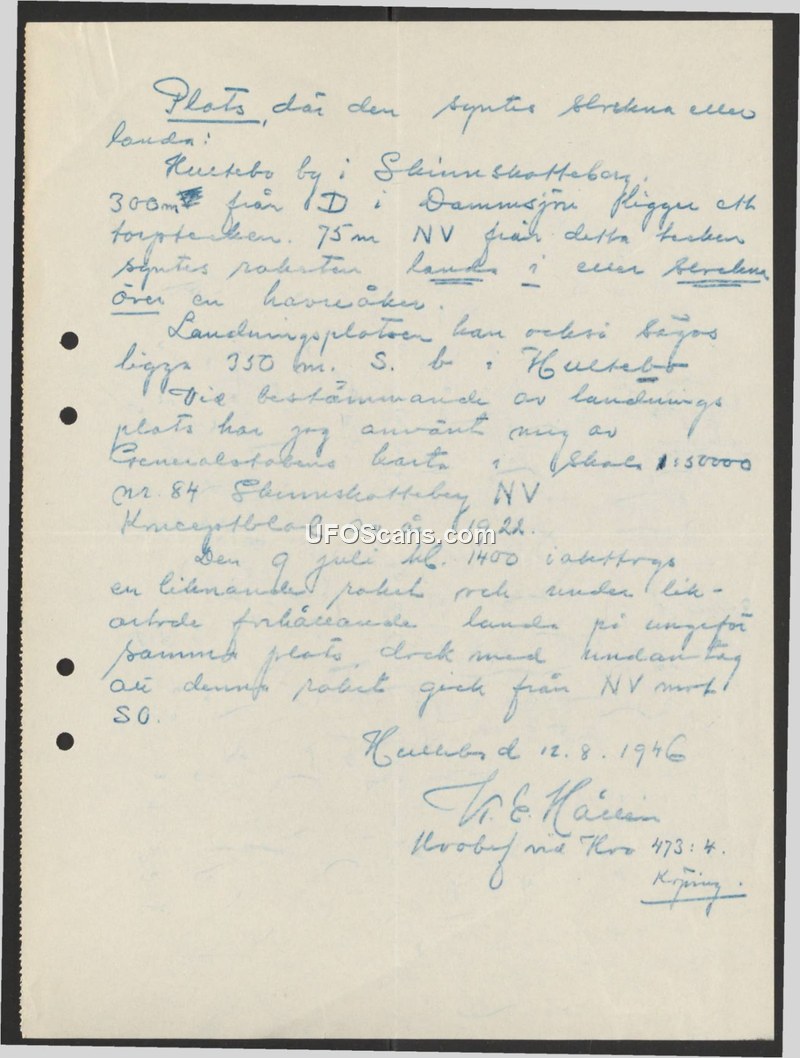 Plats, där den syntes slockna eller
landa:
Hultebo by i Skinnskatteberg.
300m från D i Dammsjön ligger ett
torptecken. 75m NV från detta tecken
syntes raketen landa i eller slockna
över en havreåker.
Landningsplatsen kan också sägas
ligga 350 m. S. b i Hultebo
Vid bestämmande av landnings
plats har jag använt mig av
Generalstabens karta i skala 1:50000
nr. 84 Skinnskatteberg NV
Konceptblad år 1922.
UFOScans.com
Den 9 juli kl. 1400 iakttogs
en liknande raket och under lik-
artade förhållande landa på ungefär
samma plats, dock med undantag
att denna raket gick från NV mot
SO.
Hultebo d 12.8.1946
E. Hållin
vid Kvo 473:4.
Köping.